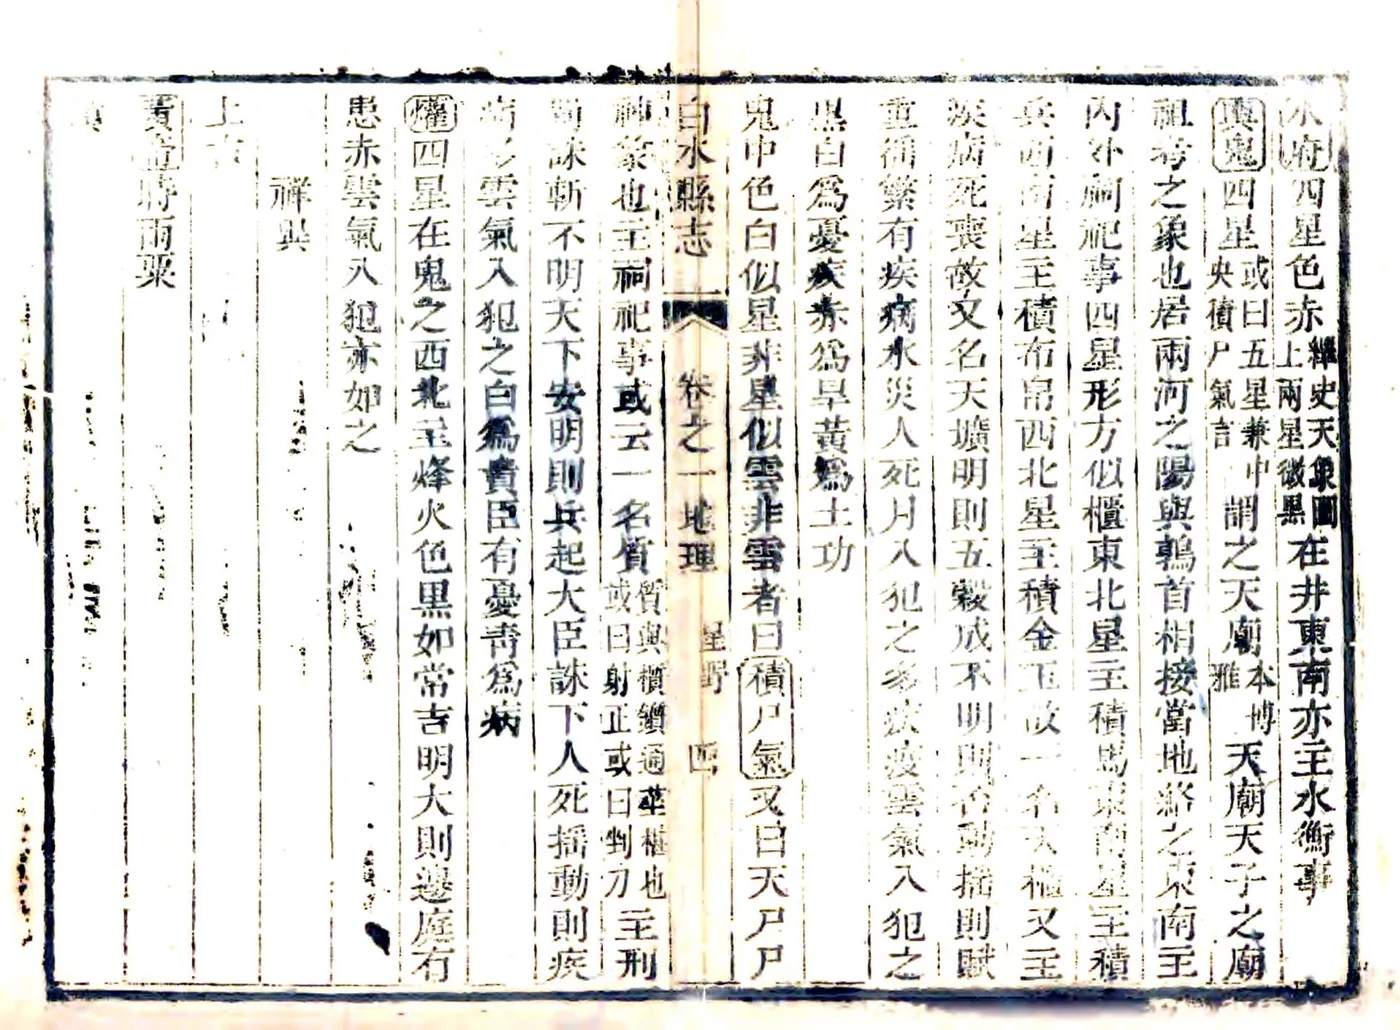 水府四星色赤繹史天象圖上兩星微黑在井東南亦主水衡事
輿鬼四星或曰五星兼中央積尸氣言謂之天廟本博雅天廟天子之廟
祖考之象也居兩河之陽與鶉首相接當地絡之東南主
內外祠祀事四星形方似櫃東北星主積馬東南星主積
兵西南星主積布帛西北星主積金玉故一名天櫃又主
疾病死喪故又名天壙明則五穀成不明則否動搖則賦
重徭繁有疾病水災人死月入犯之多疾疫雲氣入犯之
黑白為憂疾赤為旱黃為土功
鬼中色白似星非星似雲非雲者曰積尸氣又曰天尸尸
白水縣志
卷之一地理
星野
四
神象也主祠祀事或云一名質質與櫍鑕通莝椹也或曰射正或曰剉刀主刑
戮誅斬不明天下安明則兵起大臣誅下人死搖動則疾
病多雲氣入犯之白為貴臣有憂青為病
爟四星在鬼之西北主烽火色黑如常吉明大則邊庭有
患赤雲氣入犯亦如之
祥異
上古
黃帝時雨粟